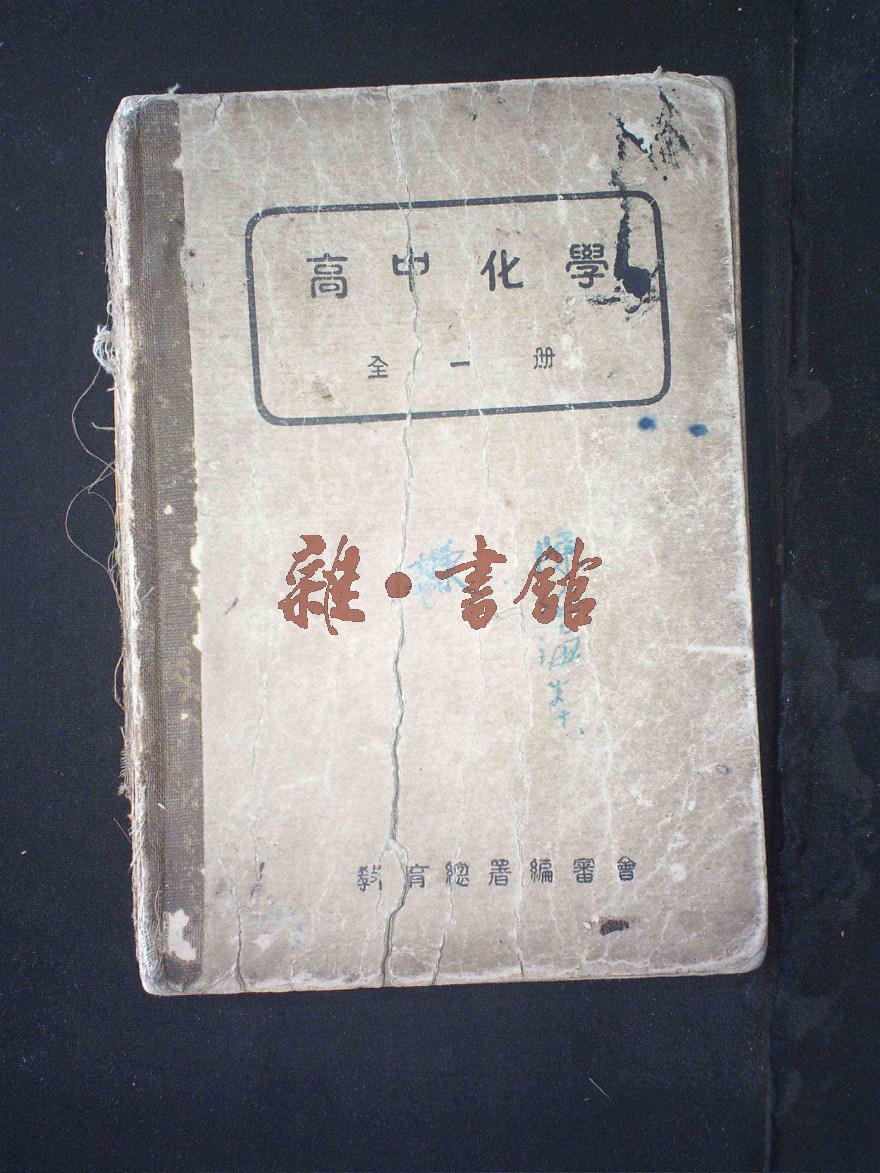 高中化學
全一册
雜·書館
教育總署編審會